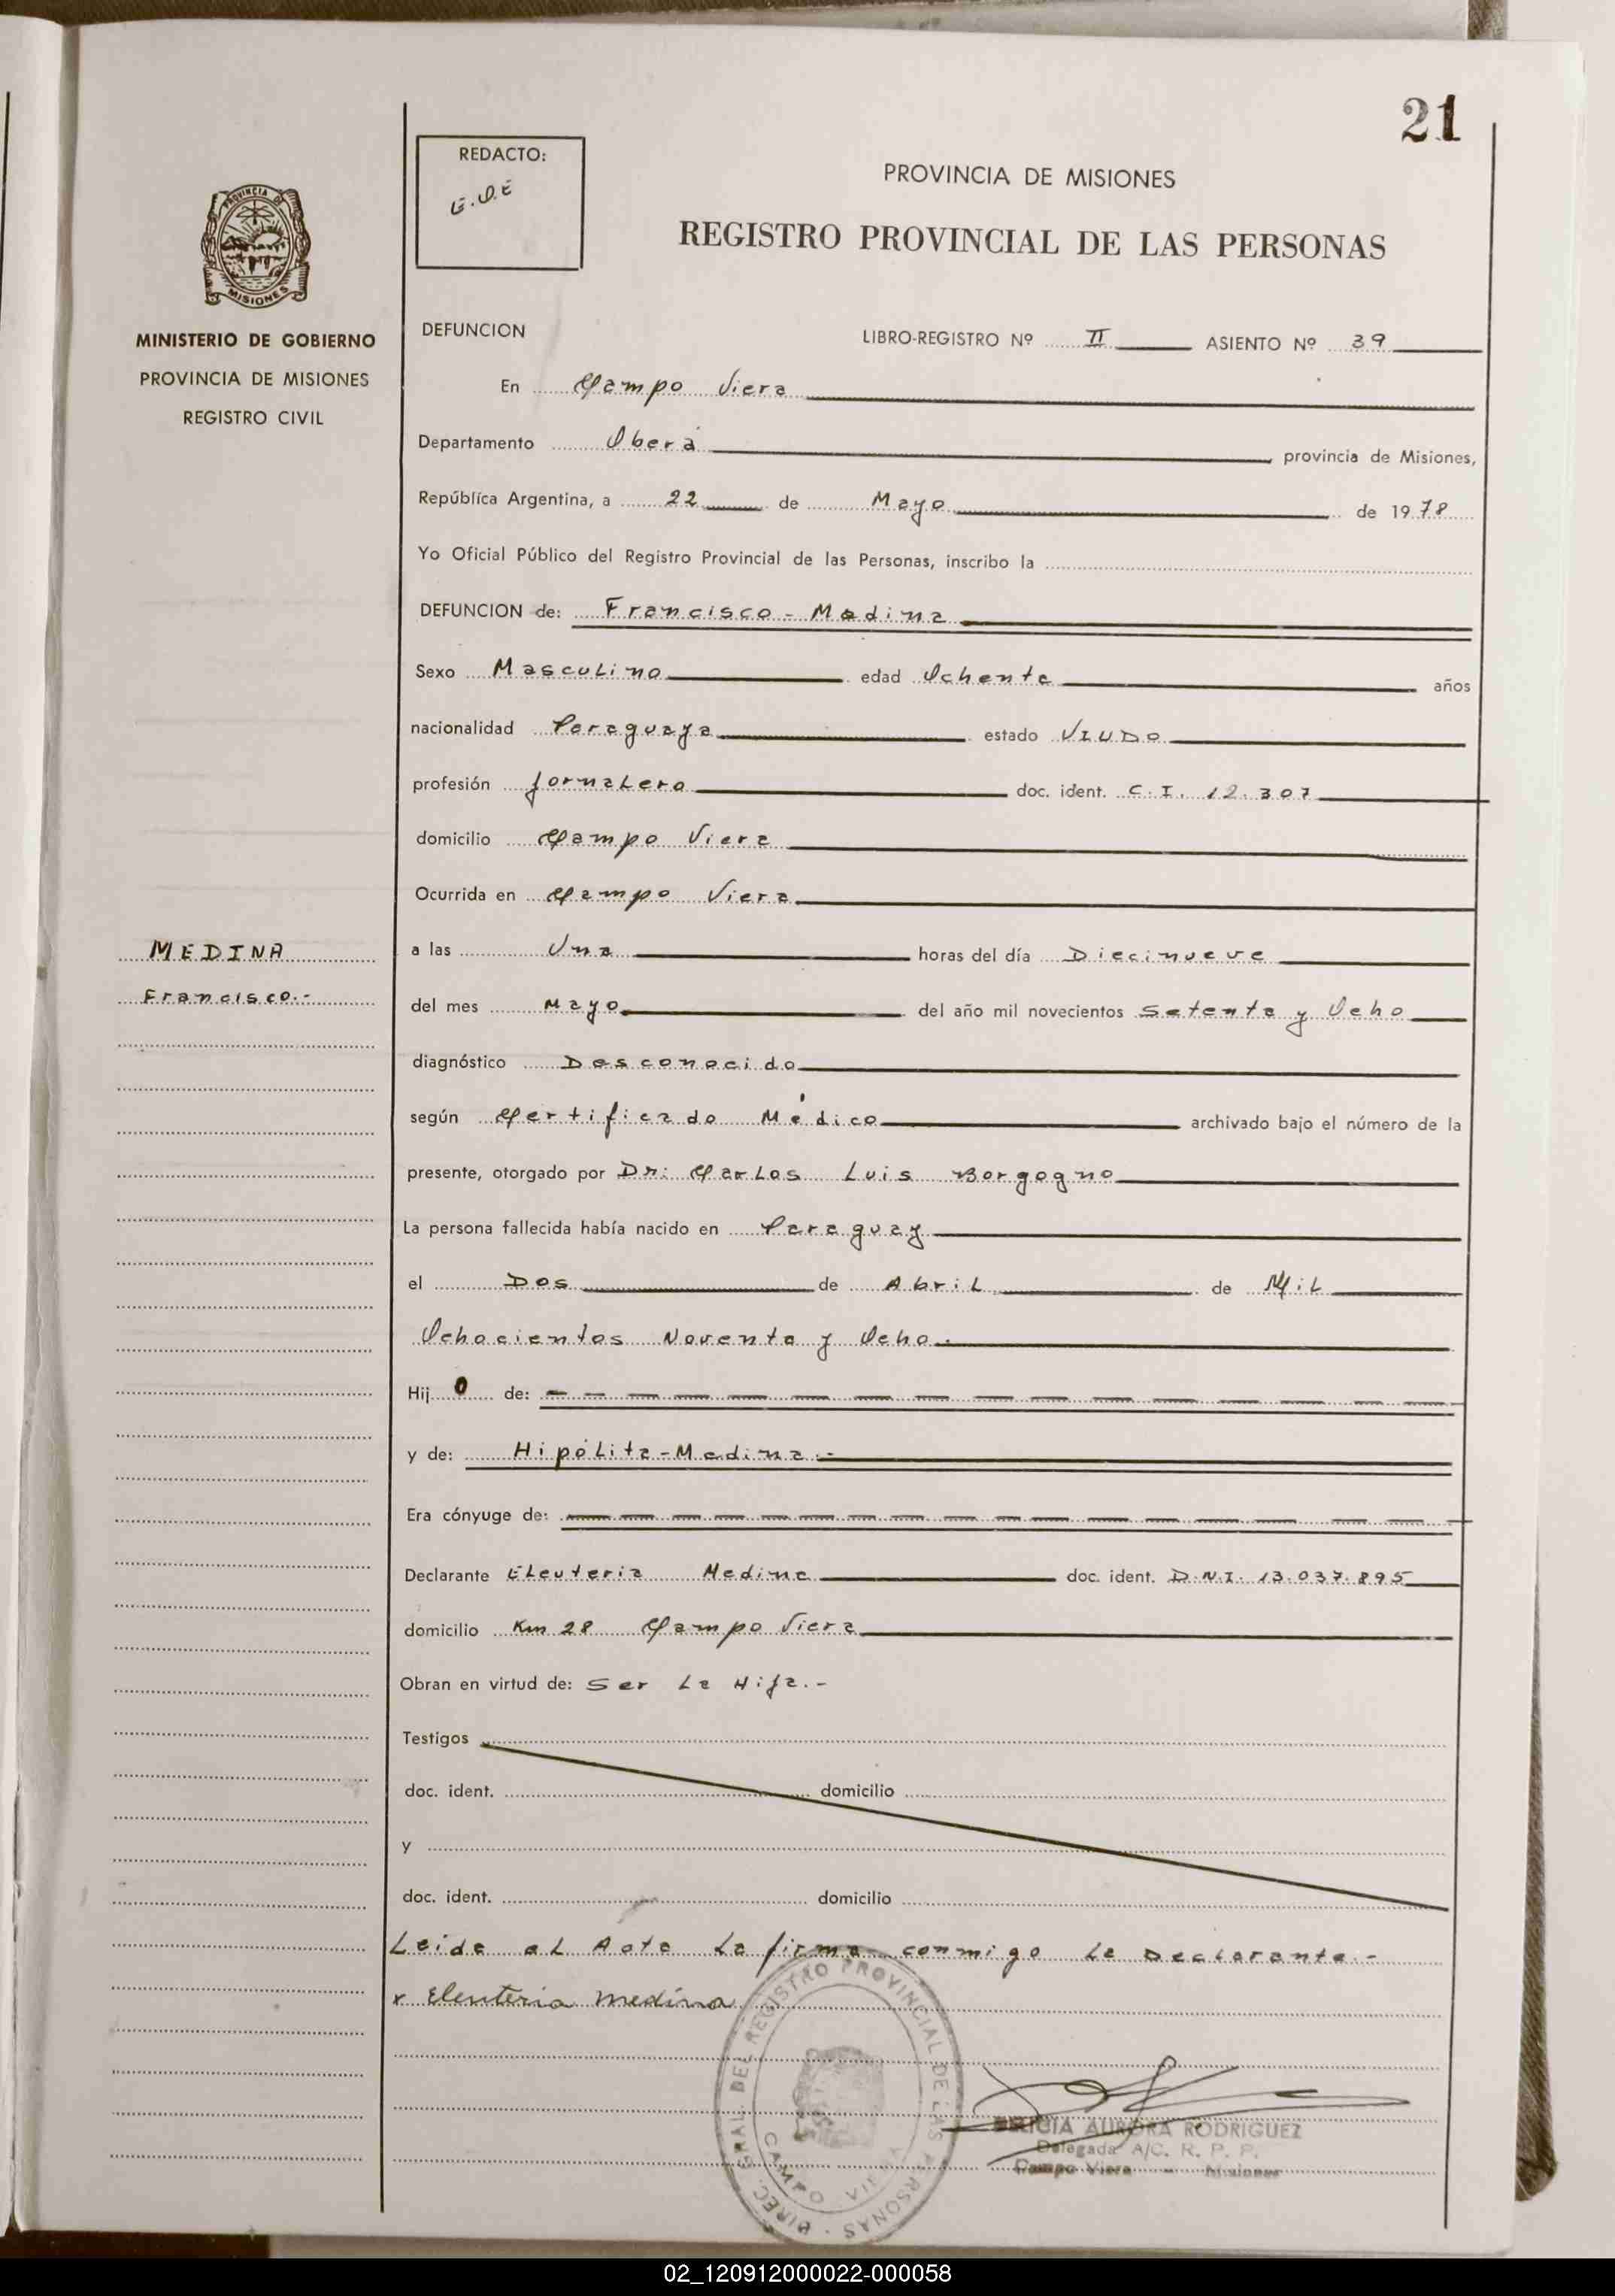 21
REDACTO:
PROVINCIA DE MISIONES
REGISTRO PROVINCIAL DE LAS PERSONAS
PROVINCIA DE
MISIONES
MINISTERIO DE GOBIERNO
PROVINCIA DE MISIONES
REGISTRO CIVIL
DEFUNCION LIBRO-REGISTRO Nº II ASIENTO Nº 39
En Campo Viera
Departamento Oberá provincia de Misiones,
República Argentina, a 22 de Mayo de 1978
Yo Oficial Público del Registro Provincial de las Personas, inscribo la
DEFUNCION de: Francisco - Medina
Sexo Masculino edad Ochenta años
nacionalidad Paraguaya estado VIUDO
profesión Jornalero doc. ident. C.I. 12.307
domicilio Campo Viera
Ocurrida en Campo Viera
MEDINA
Francisco.-
a las Una horas del día Diecinueve
del mes Mayo del año mil novecientos Setenta y Ocho
diagnóstico Desconocido
según Certificado Médico archivado bajo el número de la
presente, otorgado por Dr: Carlos Luis Borgogno
La persona fallecida había nacido en Paraguay
el Dos de Abril de Mil
Ochocientos Noventa y Ocho.
Hijo de: — — — — — — — — — — — — — —
y de: Hipólita - Medina.-
Era cónyuge de: — — — — — — — — — — — — — —
Declarante Eleuteria Medina doc. ident. D.N.I. 13.037.895
domicilio Km 28 Campo Viera
Obran en virtud de: Ser La Hija.-
Testigos
doc. ident. domicilio
y
doc. ident. domicilio
Leida el Acta La firma conmigo La Declarante.-
x Eleuteria medina
DIREC. GRAL. DEL REGISTRO PROVINCIAL DE LAS PERSONAS
CAMPO VIERA
AURORA RODRIGUEZ
Delegada A/C. R. P. P.
Campo Viera - Misiones
02_120912000022-000058